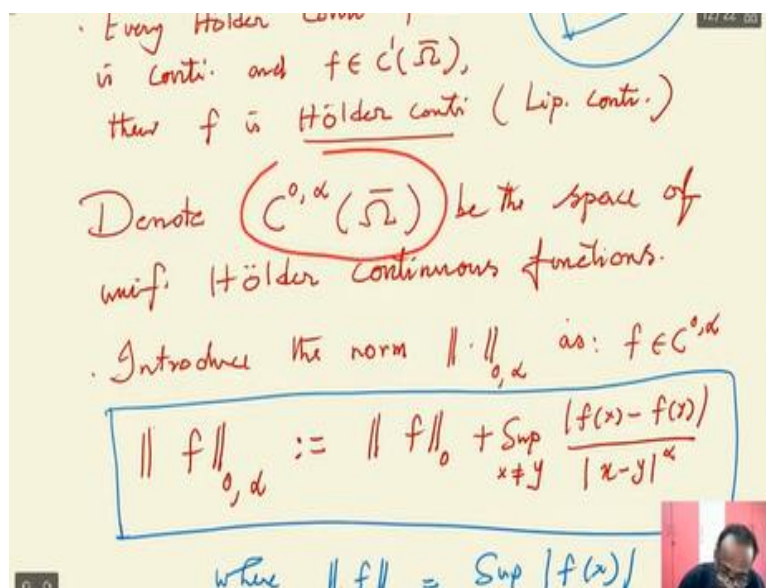 · Every Hölder
is conti. and f ∈ C¹(Ω̄),
then f is Hölder conti (Lip. conti.)
Denote C^{0,α}(Ω̄) be the space of
unif. Hölder continuous functions.
· Introduce the norm ‖·‖_{0,α} as: f ∈ C^{0,α}
‖f‖_{0,α} := ‖f‖_0 + Sup_{x≠y} |f(x) - f(y)| / |x-y|^α
where ‖f‖ = Sup |f(x)|